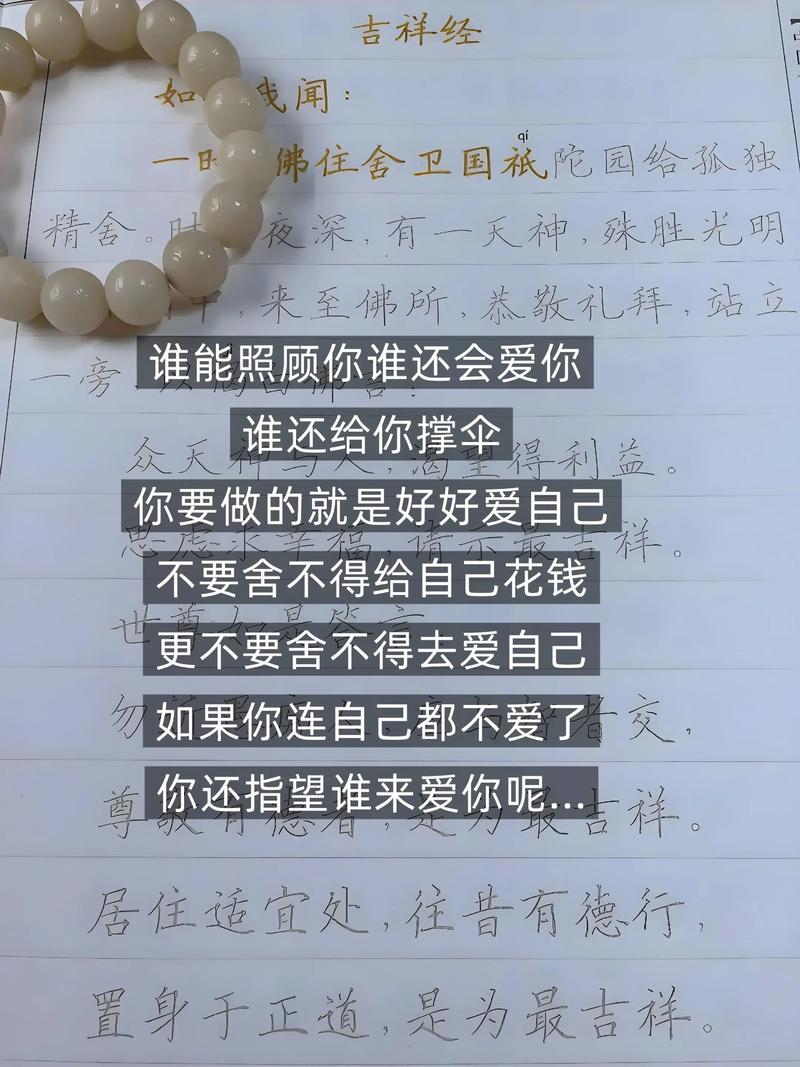 吉祥经
如我闻：
qí
一时佛住舍卫国祇陀园给孤独
精舍。时夜深，有一天神，殊胜光明
中，来至佛所，恭敬礼拜，站立
谁能照顾你谁还会爱你
一旁，
谁还给你撑伞
众天神与人，渴望得利益。
你要做的就是好好爱自己
思虑求幸福，请示最吉祥。
不要舍不得给自己花钱
世尊如是答言
更不要舍不得去爱自己
如果你连自己都不爱了
勿者交，
你还指望谁来爱你呢...
尊敬有德者，是为最吉祥。
居住适宜处，往昔有德行，
置身于正道，是为最吉祥。